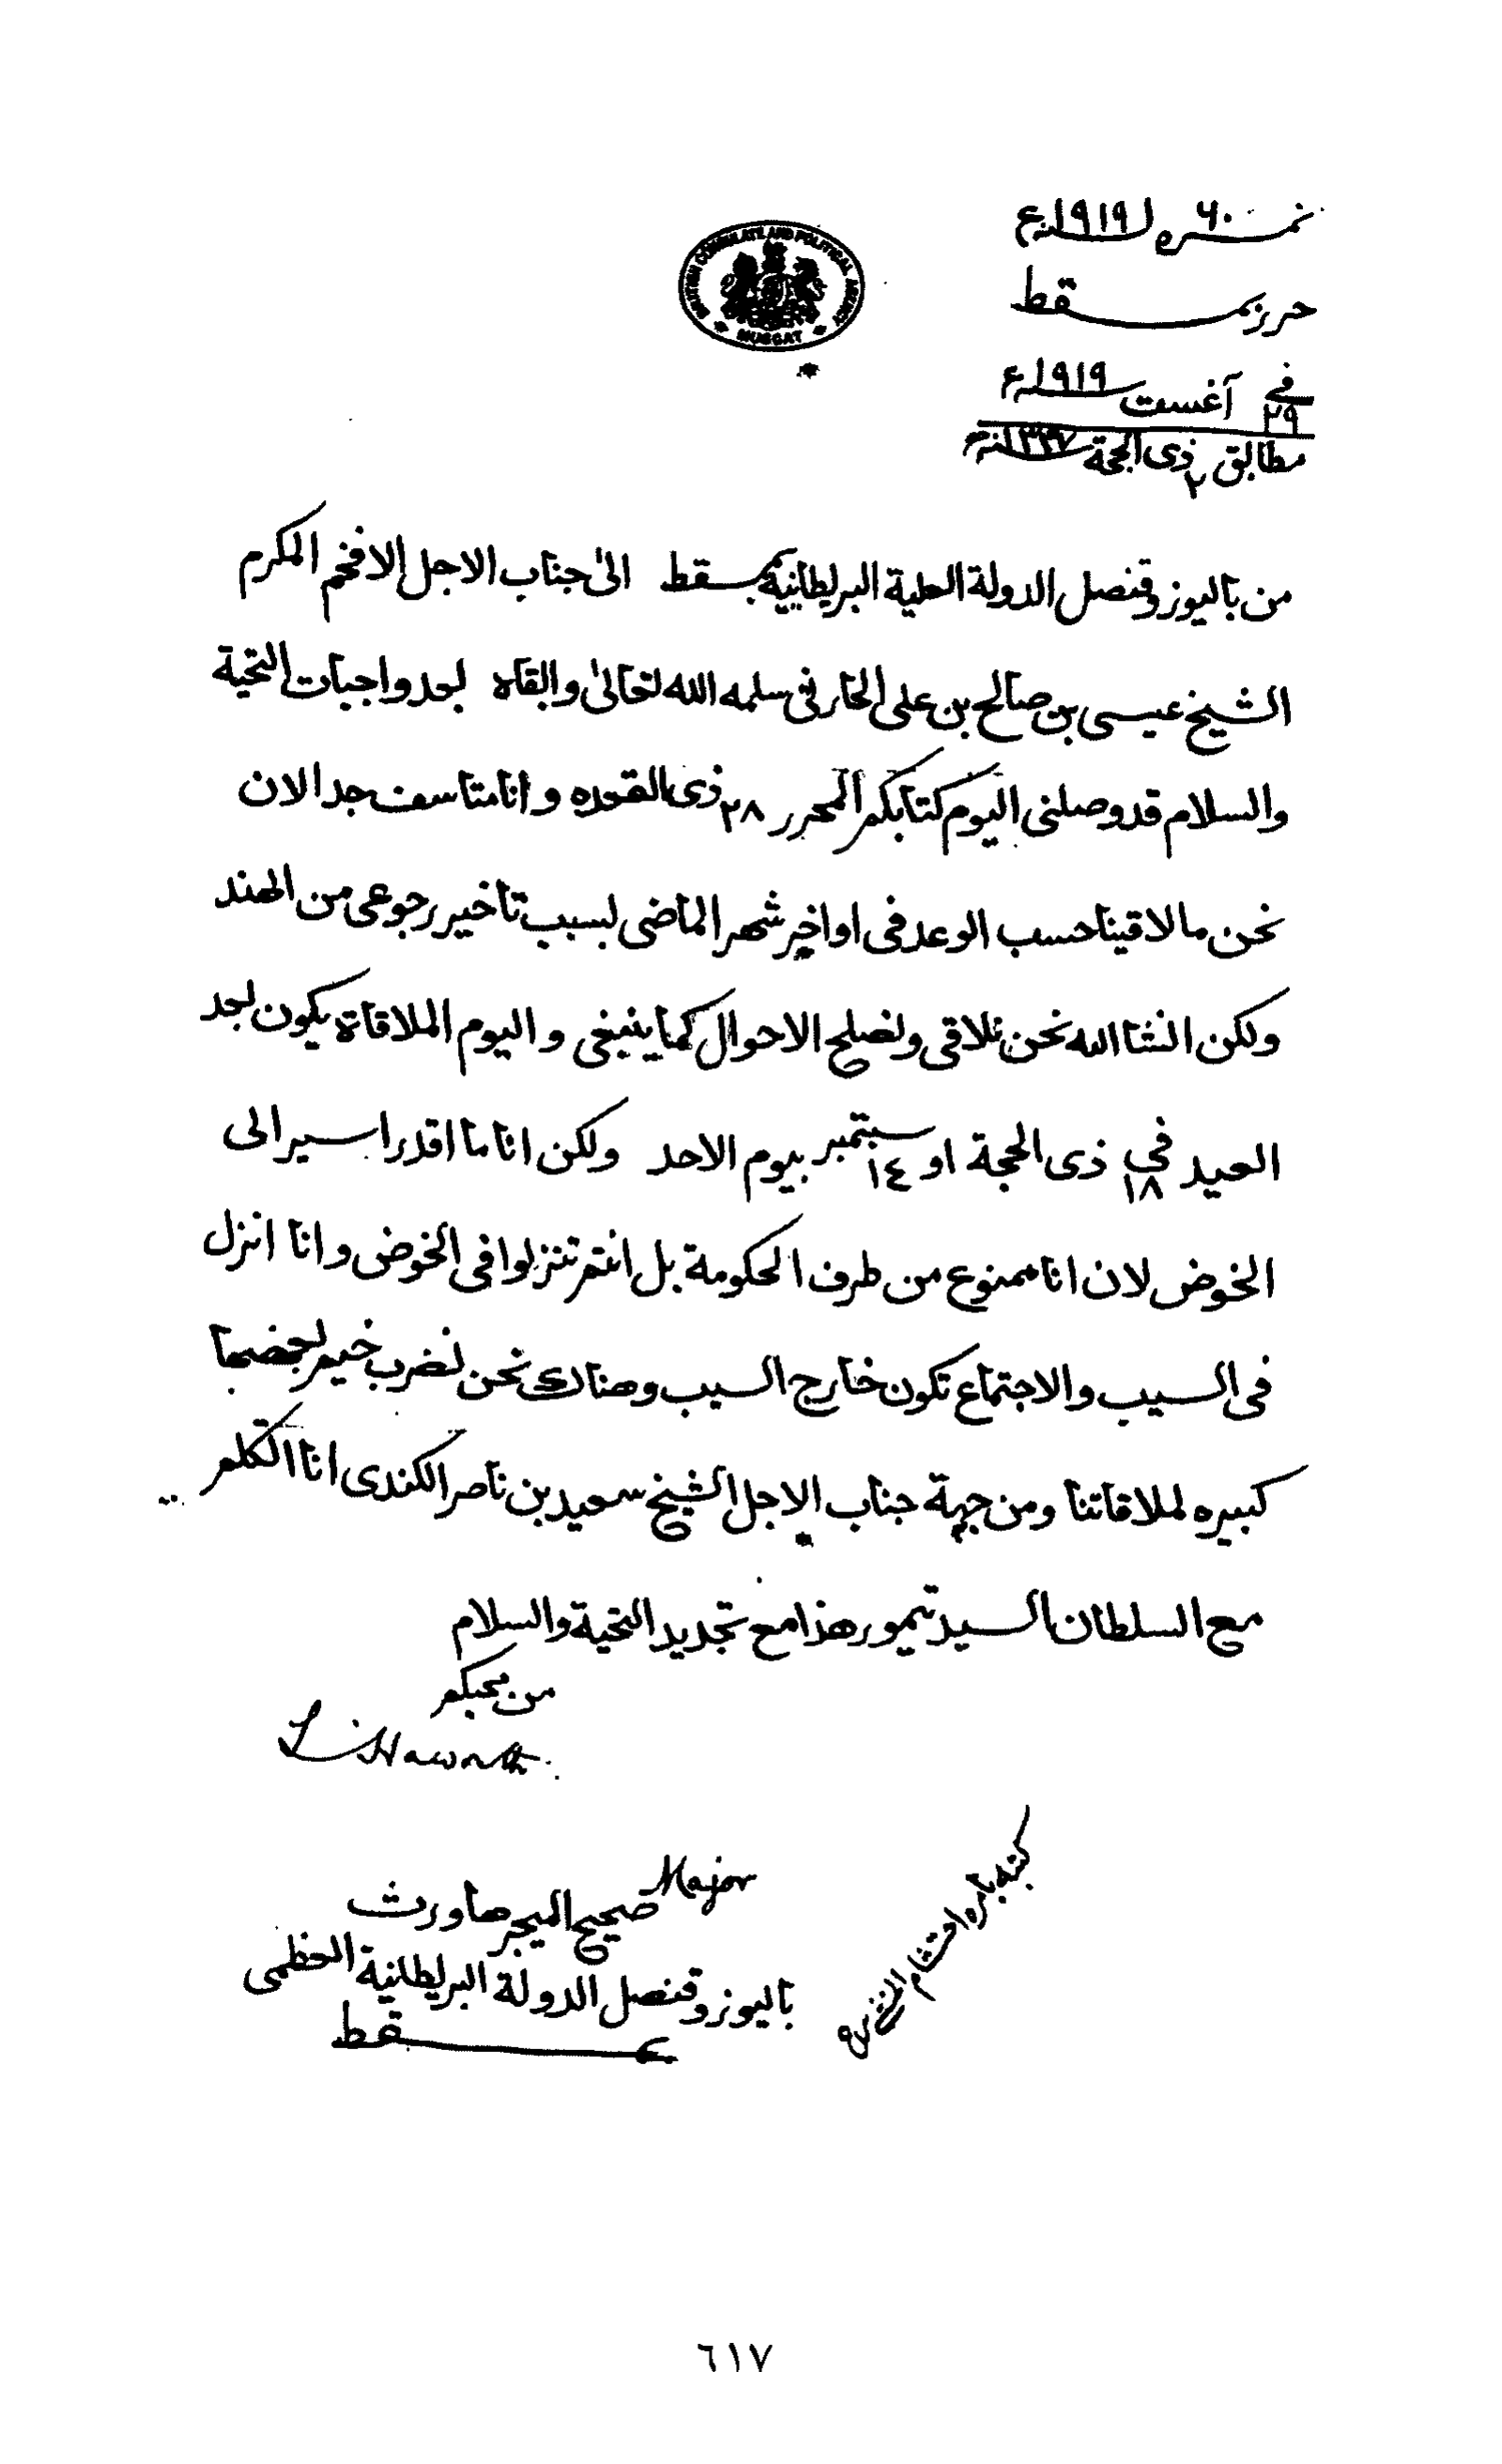 نمره ٦٠ سنه ١٩١٩ع
BRITISH CONSULATE AND POLITICAL AGENCY
MUSCAT
حرر بمسقط
في ٢٩ آغست سنه ١٩١٩ع
مطابق ٢ ذى الحجة سنه ١٣٣٧
من باليوز وقنصل الدولة العلية البريطانية بمسقط الىٰ جناب الاجل الافخم المكرم
الشيخ عيسى بن صالح بن على الحارثى سلمه الله تعالىٰ وابقاه بعد واجبات التحية
والسلام قد وصلنى اليوم كتابكم المحرر ٢٨ ذى القعده و انا متاسف جدا لان
نحن ما لاقينا حسب الوعد فى اواخر شهر الماضى بسبب تاخير رجوعى من الهند
ولكن انشا الله نحن نلاقى ونصلح الاحوال كما ينبغى و اليوم الملاقاة يكون بعد
العيد في ١٨ ذى الحجة او ١٤ سبتمبر بيوم الاحد ولكن انا ما اقدر اسير الى
الخوض لان انا ممنوع من طرف الحكومة بل انتم تنزلوا فى الخوض و انا انزل
فى السيب والاجتماع تكون خارج السيب وهناك نحن نضرب خيم بعضها
كبيره لملاقاتنا ومن جهة جناب الاجل الشيخ سعيد بن ناصر الكندى انا اتكلم
مع السلطان السيد تيمور هذا مع تجديد التحية والسلام
من محبكم
L. Haworth
Major
صحيح الميجر هاورث
باليوز وقنصل الدولة البريطانية العظمى
بمسقط
كتبه بامره
٦١٧